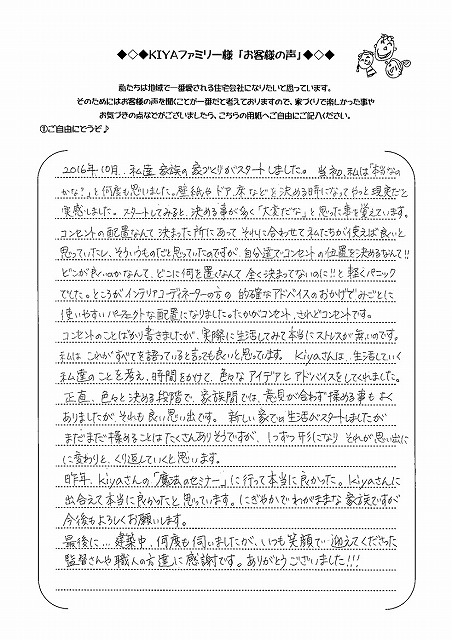 ◆◇◆KIYAファミリー様「お客様の声」◆◇◆
私たちは地域で一番愛される住宅会社になりたいと思っています。
そのためにはお客様の声を聞くことが一番だと考えておりますので、家づくりで楽しかった事や
お気づきの点などがございましたら、こちらの用紙へご自由にご記入ください。
①ご自由にどうぞ♪
2016年10月、私達家族の家づくりがスタートしました。当初、私は「本当なの
かな?」と何度も思いました。壁紙やドア、床などを決める時になってやっと現実だと
実感しました。スタートしてみると、決める事が多く「大変だな」と思った事を覚えています。
コンセントの配置なんて決まった所にあって それに合わせて私たちが使えば良いと
思っていたし、そういうものだと思っていたのですが、自分達でコンセントの位置を決めるなんて!!
どこが良いのかなんて、どこに何を置くなんて全く決まってないのに!!と軽くパニック
でした。ところがインテリアコーディネーターの方の的確なアドバイスのおかげでみごとに
使いやすいパーフェクトな配置になりました。たかがコンセント、されどコンセントです。
コンセントのことばかり書きましたが、実際に生活してみて本当にストレスが無いのです。
私は これがすべてを語っていると言っても良いと思っています。Kiyaさんは、生活していく
私達のことを考え、時間をかけて、色々なアイデアとアドバイスをしてくれました。
正直、色々と決める段階で、家族間では、意見が合わず揉める事も多く
ありましたが、それも良い思い出です。新しい家での生活がスタートしましたが
まだまだ揉めることはたくさんありそうですが、1つずつ形になり それが思い出に
に変わりと、くり返していくと思います。
昨年、Kiyaさんの「魔法のセミナー」に行って本当に良かった。Kiyaさんに
出会えて本当に良かったと思っています。にぎやかでわがままな家族ですが
今後もよろしくお願いします。
最後に…建築中、何度も伺いましたが、いつも笑顔で迎えてくださった
監督さんや職人の方達に感謝です。ありがとうございました!!!